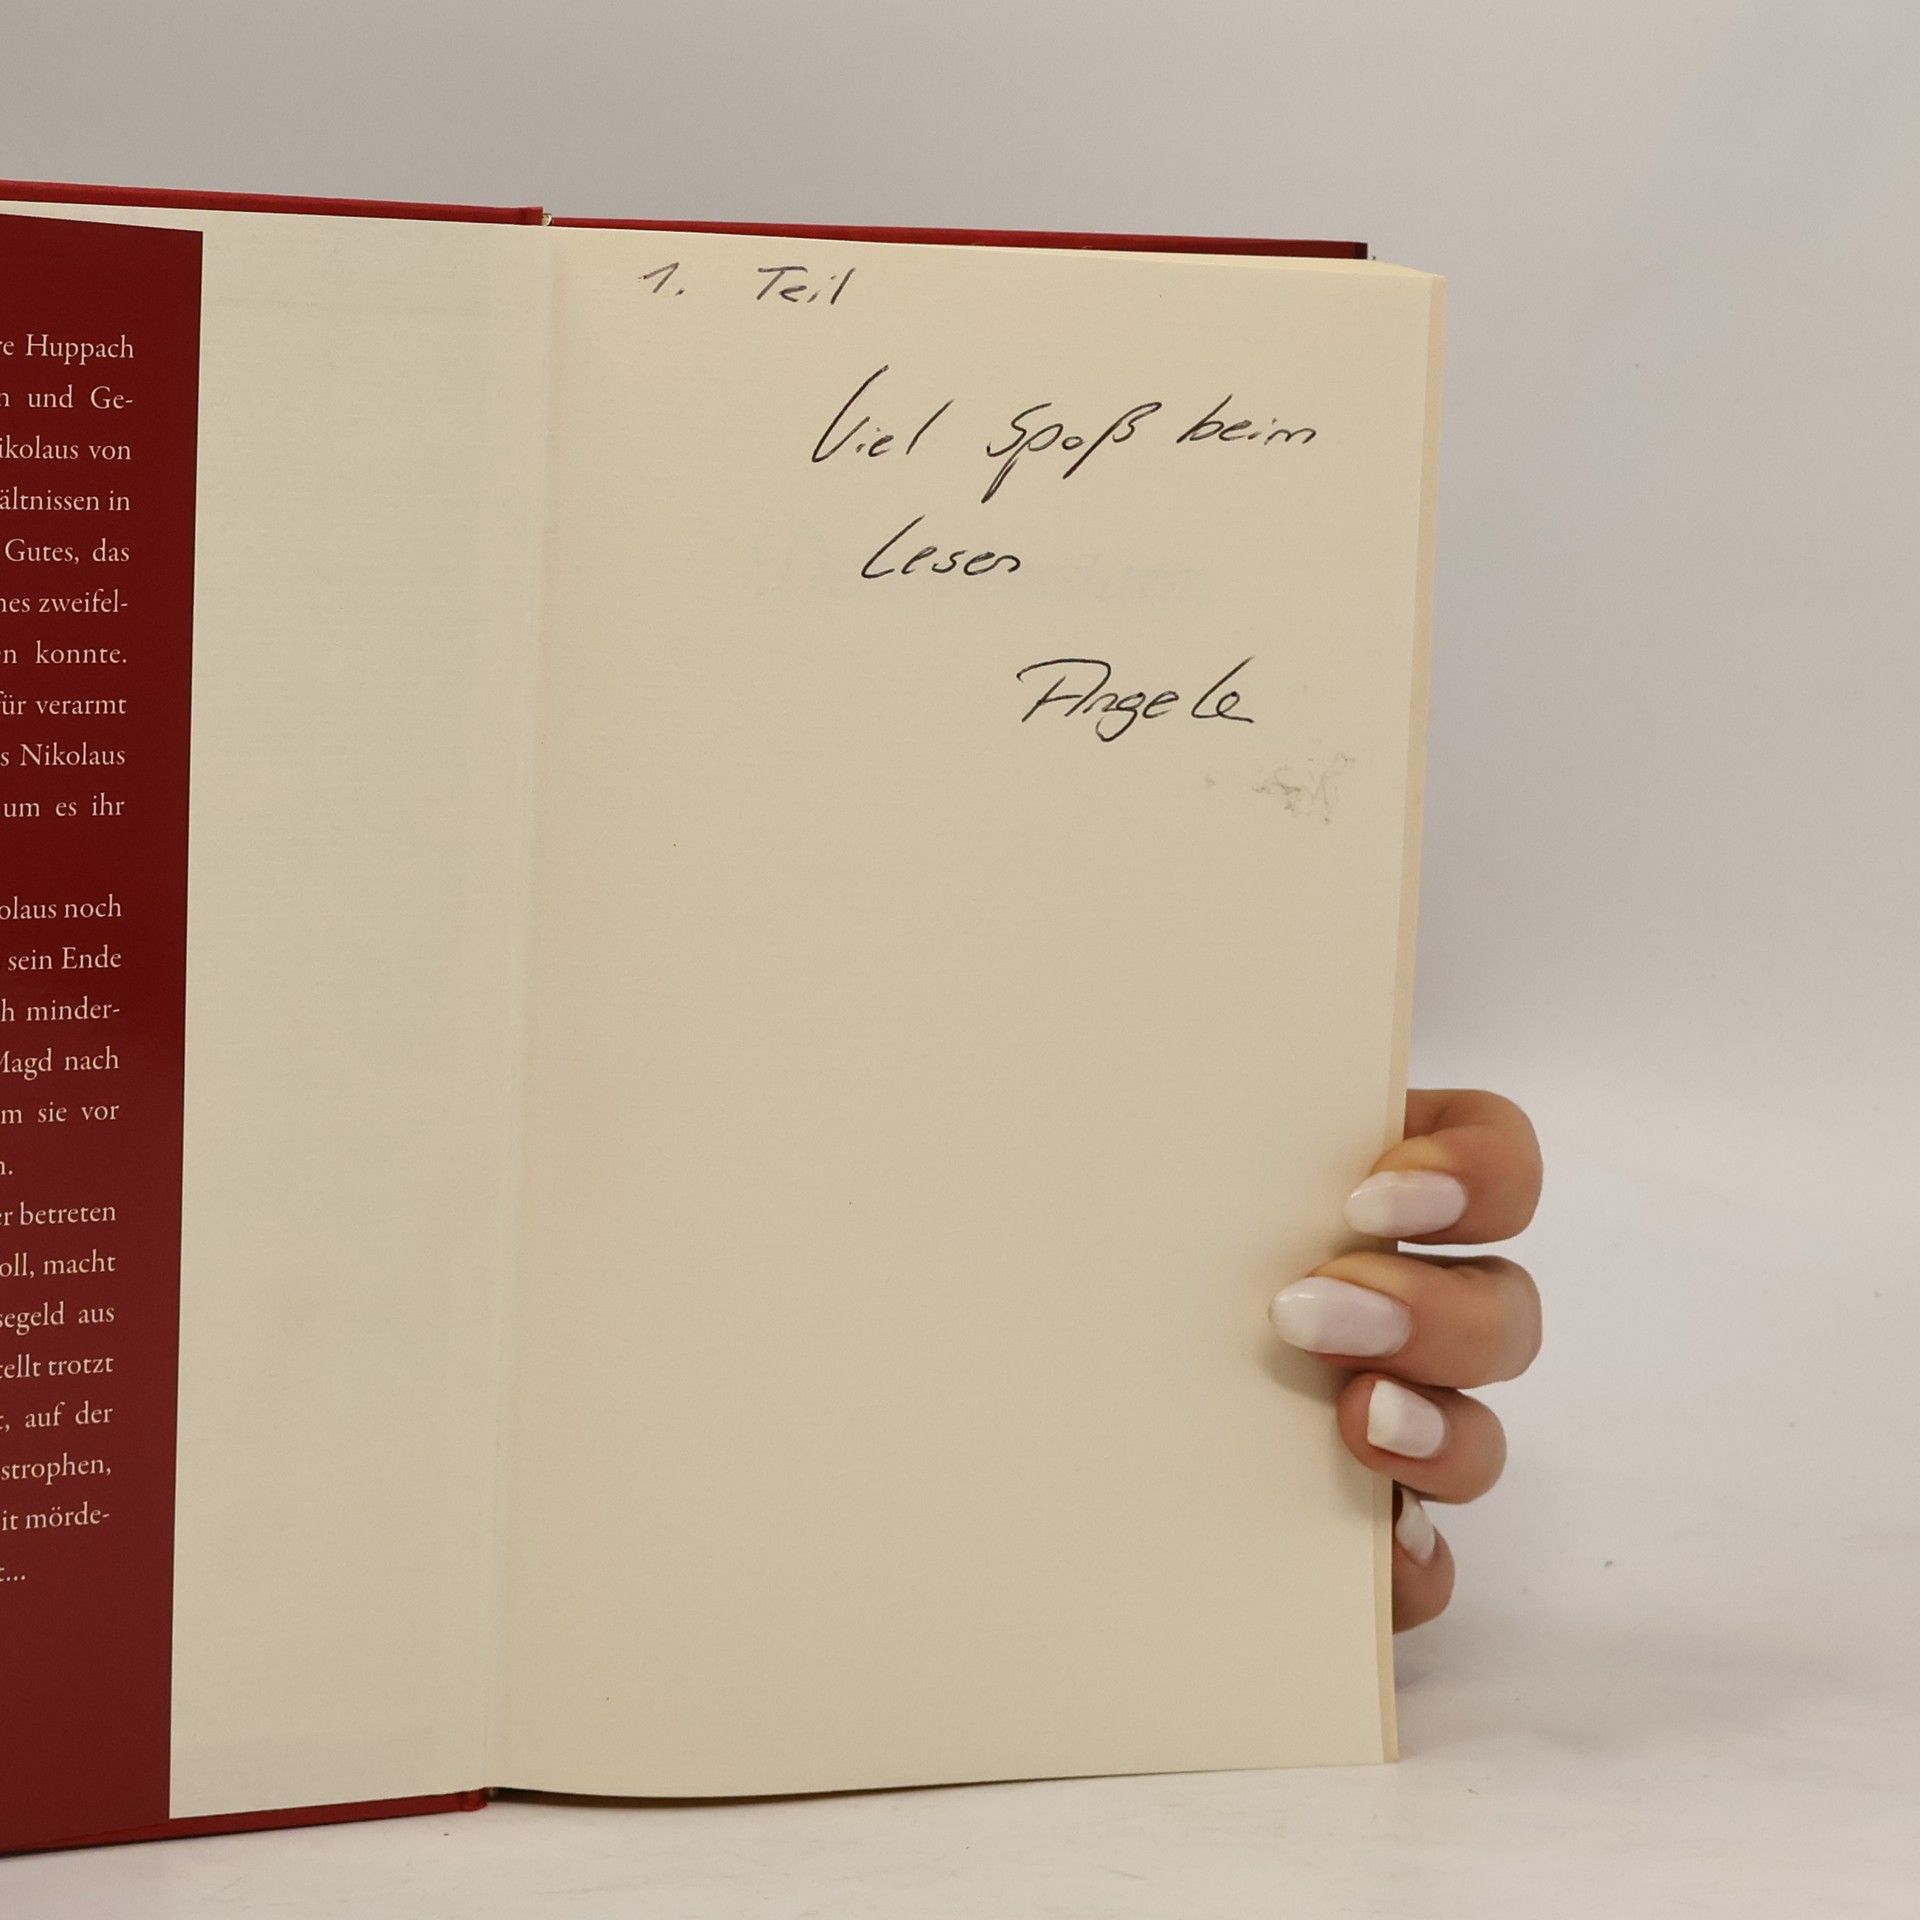 re Huppach
n und Ge-
ikolaus von
ältnissen in
Gutes, das
nes zweifel-
en konnte.
für verarmt
s Nikolaus
um es ihr
olaus noch
sein Ende
h minder-
Magd nach
m sie vor
n.
er betreten
oll, macht
segeld aus
tellt trotzt
t, auf der
strophen,
it mörde-
t...
1. Teil
Viel Spaß beim
Lesen
Angela